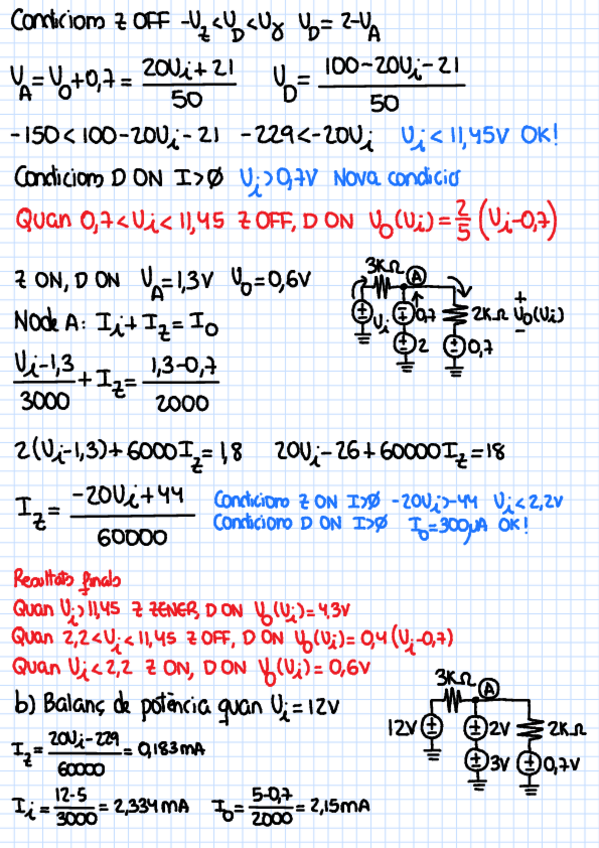 Condicions Z OFF -U_Z < U_D < U_γ U_D = 2-U_A
U_A = U_O + 0,7 = (20U_i + 21)/50 U_D = (100-20U_i-21)/50
-150 < 100-20U_i-21 -229 < -20U_i U_i < 11,45V OK!
Condicions D ON I>Ø U_i>0,7V Nova condició
Quan 0,7<U_i<11,45 Z OFF, D ON U_O(U_i) = 2/5 (U_i-0,7)
Z ON, D ON U_A=1,3V U_O=0,6V
Node A: I_i + I_Z = I_O
(U_i-1,3)/3000 + I_Z = (1,3-0,7)/2000
3KΩ A
U_i 0,7 2KΩ + U_O(U_i) -
2 0,7
2(U_i-1,3)+6000I_Z = 1,8 20U_i-26+60000I_Z = 18
I_Z = (-20U_i+44)/60000
Condicions Z ON I>Ø -20U_i>-44 U_i<2,2V
Condicions D ON I>Ø I_O=300μA OK!
Resultats finals
Quan U_i>11,45 Z ZENER, D ON U_O(U_i)=4,3V
Quan 2,2<U_i<11,45 Z OFF, D ON U_O(U_i)=0,4(U_i-0,7)
Quan U_i<2,2 Z ON, D ON U_O(U_i)=0,6V
b) Balanç de potència quan U_i=12V
I_Z = (20U_i-229)/60000 = 0,183mA
I_i = (12-5)/3000 = 2,334mA I_O = (5-0,7)/2000 = 2,15mA
3KΩ A
12V 2V 2KΩ
3V 0,7V